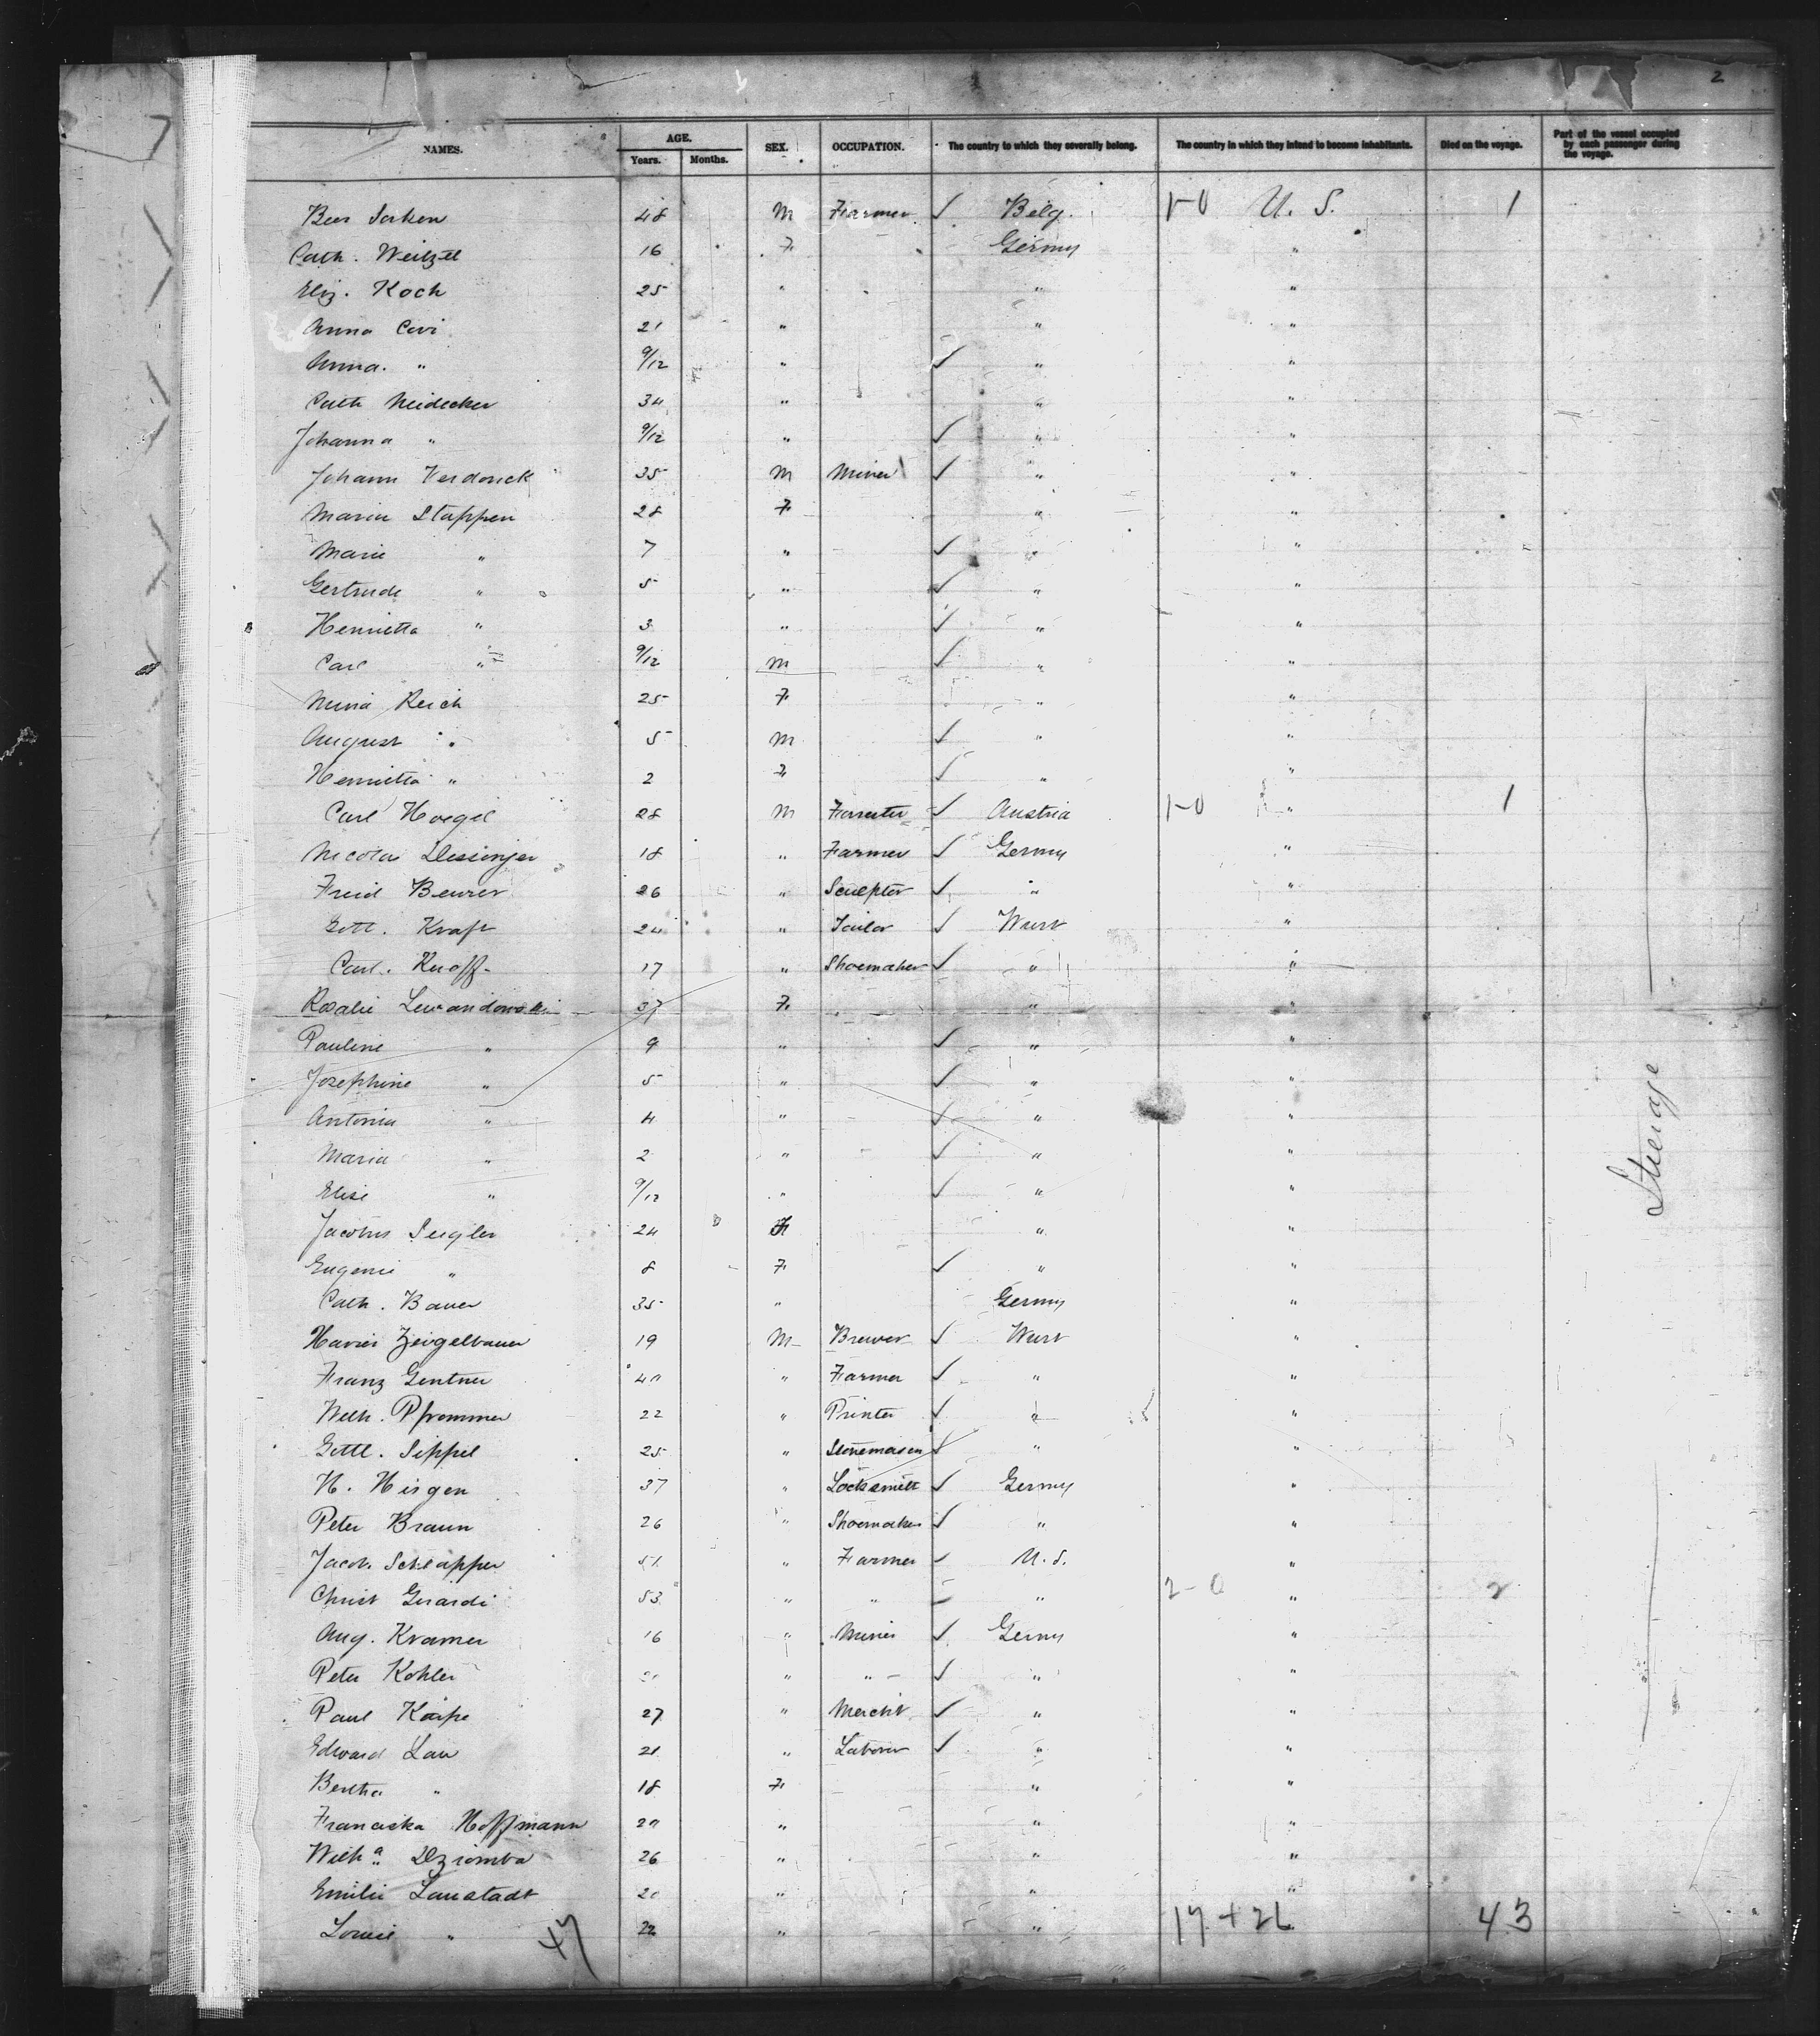 2
NAMES. AGE. Years. Months. SEX. OCCUPATION. The country to which they severally belong. The country in which they intend to become inhabitants. Died on the voyage. Part of the vessel occupied by each passenger during the voyage.
48 M Farmer ✓ Belg. 1-0 U. S. 1
Cath. Weitzel 16 F Germy "
Eliz. Koch 25 " " "
Anna Cevi 21 " " "
Anna " 9/12 " ✓ " "
Cath Neidecker 34 " " "
Johanna " 9/12 " ✓ " "
Johann Verdonck 35 M Miner ✓ " "
Maria Stappen 28 F " "
Marie " 7 " ✓ " "
Gertrude " 5 " ✓ " "
Henrietta " 3 " ✓ " "
Carl " 9/12 M ✓ " "
Mina Reich 25 F " "
August " 5 M ✓ " "
Henrietta " 2 F ✓ " "
Carl Hoegel 28 M ✓ Austria 1-0 " 1
Nicolai 18 " Farmer ✓ Germy "
Beurer 26 " Sculptor ✓ " "
Gottl. Kraft 24 " Tailor ✓ Wurt "
Carl. Knoff 17 " Shoemaker ✓ " "
Rosalie Lewandowski 37 F " "
Pauline " 9 " ✓ " "
Josephine " 5 " ✓ " "
Antonia " 4 " ✓ " "
Maria " 2 " ✓ " "
Elise " 9/12 " ✓ " "
Seigler 24 F " "
Eugenie " 8 F ✓ " "
Cath. Bauer 35 " Germy "
Xavier Zeigelbauer 19 M Brewer ✓ Wurt "
Franz Gentner 40 " Farmer ✓ " "
Wilh. Pfrommer 22 " Printer ✓ " "
Gottl. Sippel 25 " Stonemason ✓ " "
H. Hisgen 37 " Locksmith ✓ Germy "
Peter Braun 26 " Shoemaker ✓ " "
Jacob. Schlapper " Farmer ✓ U. S. "
Christ Gerardi 53 " " " 2-0 " 2
Aug. Kramer 16 " Miner ✓ Germy "
Peter Kohler " " ✓ " "
Paul 27 " Mercht ✓ " "
Edward Lau 21 " Laborer ✓ " "
Bertha " 18 F " "
Franciska Hoffmann " " "
Wilha. Dziomba 26 " " "
Emilie Lanstadt " " "
Louise " 22 " "
47 17 + 26 43
Steerage